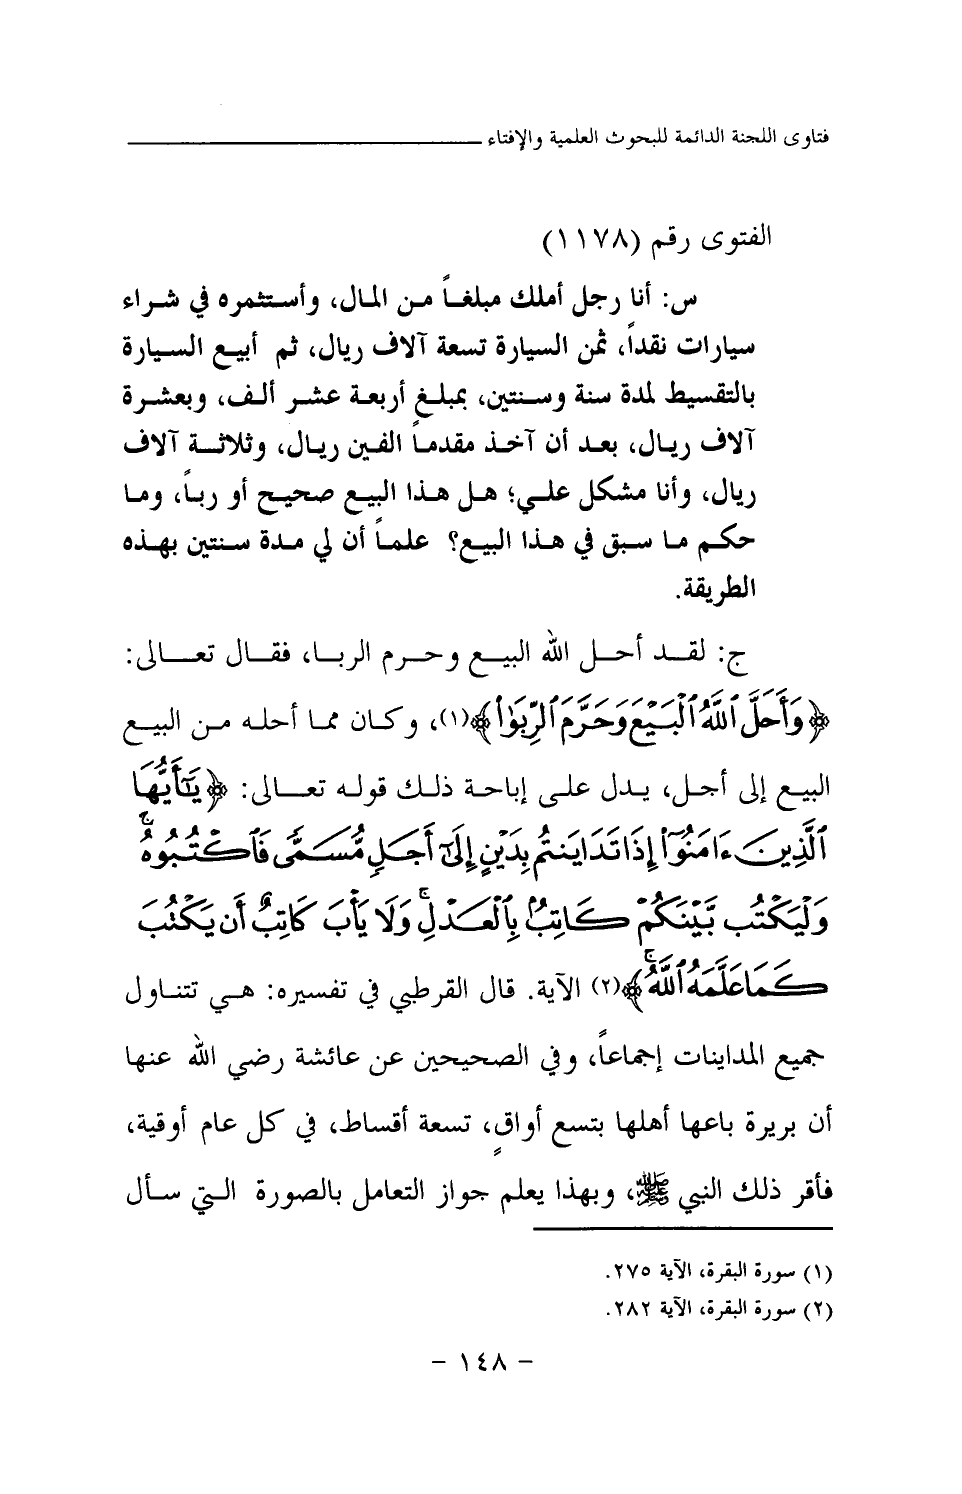 فتاوى اللجنة الدائمة للبحوث العلمية والإفتاء
الفتوى رقم (١١٧٨)
س: أنا رجل أملك مبلغاً من المال، وأستثمره في شراء
سيارات نقداً، ثمن السيارة تسعة آلاف ريال، ثم أبيع السيارة
بالتقسيط لمدة سنة وسنتين، بمبلغ أربعة عشر ألف، وبعشرة
آلاف ريال، بعد أن آخذ مقدماً الفين ريال، وثلاثة آلاف
ريال، وأنا مشكل علي؛ هل هذا البيع صحيح أو رباً، وما
حكم ما سبق في هذا البيع؟ علماً أن لي مدة سنتين بهذه
الطريقة.
ج: لقد أحل الله البيع وحرم الربا، فقال تعالى:
﴿وَأَحَلَّ ٱللَّهُ ٱلْبَيْعَ وَحَرَّمَ ٱلرِّبَوٰا۟﴾(١)، وكان مما أحله من البيع
البيع إلى أجل، يدل على إباحة ذلك قوله تعالى: ﴿يَٰٓأَيُّهَا
ٱلَّذِينَ ءَامَنُوٓا۟ إِذَا تَدَايَنتُم بِدَيْنٍ إِلَىٰٓ أَجَلٍ مُّسَمًّى فَٱكْتُبُوهُ ۚ
وَلْيَكْتُب بَّيْنَكُمْ كَاتِبٌۢ بِٱلْعَدْلِ ۚ وَلَا يَأْبَ كَاتِبٌ أَن يَكْتُبَ
كَمَا عَلَّمَهُ ٱللَّهُ ۚ﴾(٢) الآية. قال القرطبي في تفسيره: هي تتناول
جميع المداينات إجماعاً، وفي الصحيحين عن عائشة رضي الله عنها
أن بريرة باعها أهلها بتسع أواقٍ، تسعة أقساط، في كل عام أوقية،
فأقر ذلك النبي ﷺ، وبهذا يعلم جواز التعامل بالصورة التي سأل
(١) سورة البقرة، الآية ٢٧٥.
(٢) سورة البقرة، الآية ٢٨٢.
- ١٤٨ -